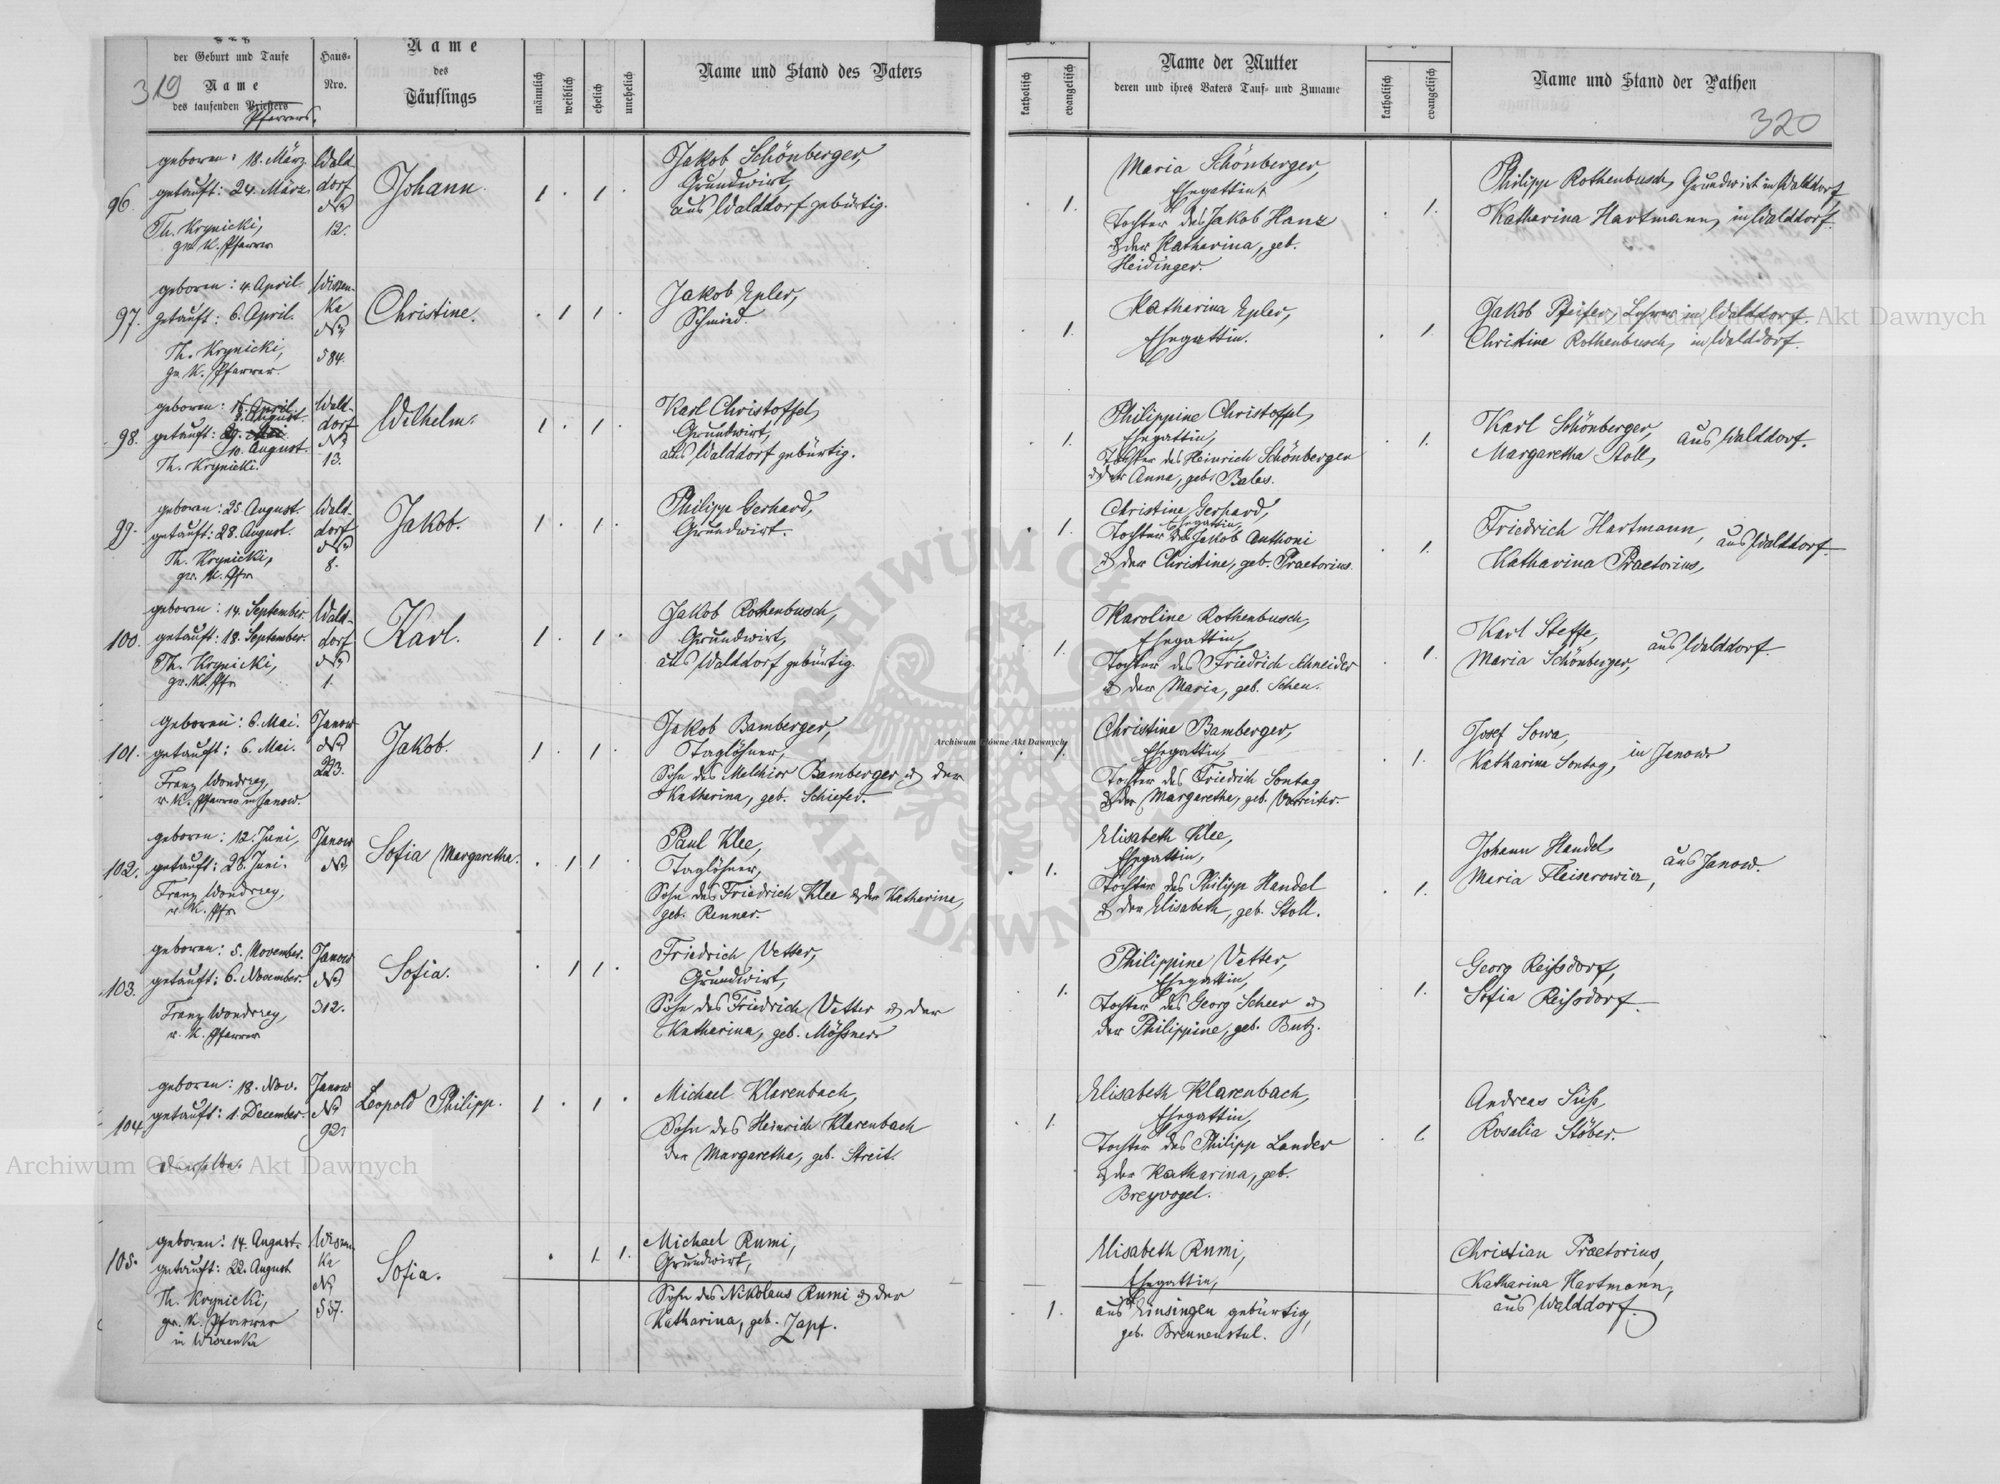 319
Tag
der Geburt und Taufe
Name
des taufenden Priesters
Pfarrers.
Haus-
Nro.
Name
des
Täuflings
männlich
weiblich
ehelich
unehelich
Name und Stand des Vaters
katholisch
evangelisch
Name der Mutter
deren und ihres Vaters Tauf- und Zuname
katholisch
evangelisch
Name und Stand der Pathen
320
96.
geboren: 18. März
getauft: 24. März.
Th. Krynicki,
gr. k. Pfarrer
Wald
dorf
No
12.
Johann.
1 . 1 .
Jakob Schönberger,
Grundwirt,
aus Walddorf gebürtig.
. 1.
Maria Schönberger,
Ehegattin,
Tochter des Jakob Hanz
& der Katharina, geb.
Heidinger.
. 1.
Philipp Rothenbusch, Grundwirt in Walddorf,
Katharina Hartmann, in Walddorf.
97.
geboren: 4. April
getauft: 6. April.
Th. Krynicki,
gr. k. Pfarrer.
Wiszen-
ka
No
584.
Christine.
. 1 1 .
Jakob Epler,
Schmied.
. 1.
Katharina Epler,
Ehegattin.
. 1.
Jakob Pfeifer, Lehrer in Walddorf.
Christine Rothenbusch, in Walddorf.
98.
geboren: 16. April
August
getauft: 29. Mai
10. August.
Th. Krynicki.
Wald-
dorf
No
13.
Wilhelm.
1 . 1 .
Karl Christoffel,
Grundwirt,
aus Walddorf gebürtig.
. 1.
Philippine Christoffel,
Ehegattin,
Tochter des Heinrich Schönberger
& der Anna, geb. Bales.
. 1.
Karl Schönberger,
Margaretha Stoll,
aus Walddorf.
99.
geboren: 25. August.
getauft: 28. August.
Th. Krynicki,
gr. k. Pfr
Wald-
dorf
No
8.
Jakob.
1 . 1 .
Philipp Gerhard,
Grundwirt.
. 1.
Christine Gerhard,
Ehegattin,
Tochter des Jakob Anthoni
& der Christine, geb. Praetorius.
. 1.
Friedrich Hartmann,
Katharina Praetorius,
aus Walddorf.
100.
geboren: 14. September.
getauft: 18. September.
Th. Krynicki,
gr. k. Pfr
Wald-
dorf
No
1.
Karl.
1 . 1 .
Jakob Rothenbusch,
Grundwirt,
aus Walddorf gebürtig.
. 1.
Karoline Rothenbusch,
Ehegattin,
Tochter des Friedrich Schneider
& der Maria, geb. Scheu.
. 1.
Karl Steffe,
Maria Schönberger,
aus Walddorf.
101.
geboren: 6. Mai.
getauft: 6. Mai.
Franz Wondrag,
r. k. Pfarrer in Janow.
Janow
No
223.
Jakob.
1 . 1 .
Jakob Bamberger,
Taglöhner,
Sohn des Melchior Bamberger & der
Katharina, geb. Schiefer.
. 1.
Christine Bamberger,
Ehegattin,
Tochter des Friedrich Sontag
& der Margaretha, geb. Vorreiter.
. 1.
Josef Sowa,
Katharina Sontag,
in Janow
102.
geboren: 12. Juni,
getauft: 28. Juni.
Franz Wondrag,
r. k. Pfr
Janow
No
Sofia Margaretha.
. 1 1 .
Paul Klee,
Taglöhner,
Sohn des Friedrich Klee & der Katharina,
geb. Renner.
. 1.
Elisabeth Klee,
Ehegattin,
Tochter des Philipp Handel
& der Elisabeth, geb. Stoll.
. 1.
Johann Handel,
Maria Fleiserowicz,
aus Janow.
103.
geboren: 5. November.
getauft: 6. November.
Franz Wondrag,
r. k. Pfarrer
Janow
No
312.
Sofia.
. 1 1 .
Friedrich Vetter,
Grundwirt,
Sohn des Friedrich Vetter & der
Katharina, geb. Mößner
. 1.
Philippine Vetter,
Ehegattin,
Tochter des Georg Scheer &
der Philippine, geb. Butz.
. 1.
Georg Reißdorf,
Sofia Reißdorf.
104.
geboren: 18. Nov.
getauft: 1. December.
Derselbe.
Janow
No
92.
Leopold Philipp.
1 . 1 .
Michael Klarenbach,
Sohn des Heinrich Klarenbach
der Margaretha, geb. Streit.
. 1.
Elisabeth Klarenbach,
Ehegattin,
Tochter des Philipp Lander
& der Katharina, geb.
Breyvogel.
. 1.
Andreas Süß,
Rosalia Stöber.
105.
geboren: 14. August.
getauft: 22. August
Th. Krynicki,
gr. k. Pfarrer
in Wiszenka
Wiszen-
ka
No
537.
Sofia.
. 1 1.
Michael Rumi,
Grundwirt,
Sohn des Nikolaus Rumi & der
Katharina, geb. Zapf.
. 1.
Elisabeth Rumi,
Ehegattin,
aus Einsingen gebürtig,
geb. Brennenstul.
Christian Praetorius,
Katharina Hartmann,
aus Walddorf
Archiwum Główne Akt Dawnych
Archiwum Główne Akt Dawnych
Archiwum Główne Akt Dawnych
ARCHIWUM GŁÓWNE AKT DAWNYCH